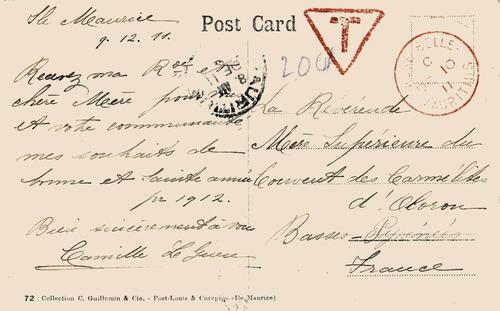 Post Card
T
Ile Maurice
9.12.11.
200
MAURITIUS
8
DE 11
ROSE BELLE
C
10
11
MAURITIUS
Recevez ma Rde et
chère Mère pour
et votre communauté
mes souhaits de
bonne et sainte année
pr 1912.
Bien sincèrement à vous
Camille Le
La Reverende
Mère Supérieure du
Couvent des Carmelites
d'Oloron
Basses-Pyrénées
France
72 Collection C. Guillemin & Cie. - Port-Louis & Curepipe (Ile Maurice)